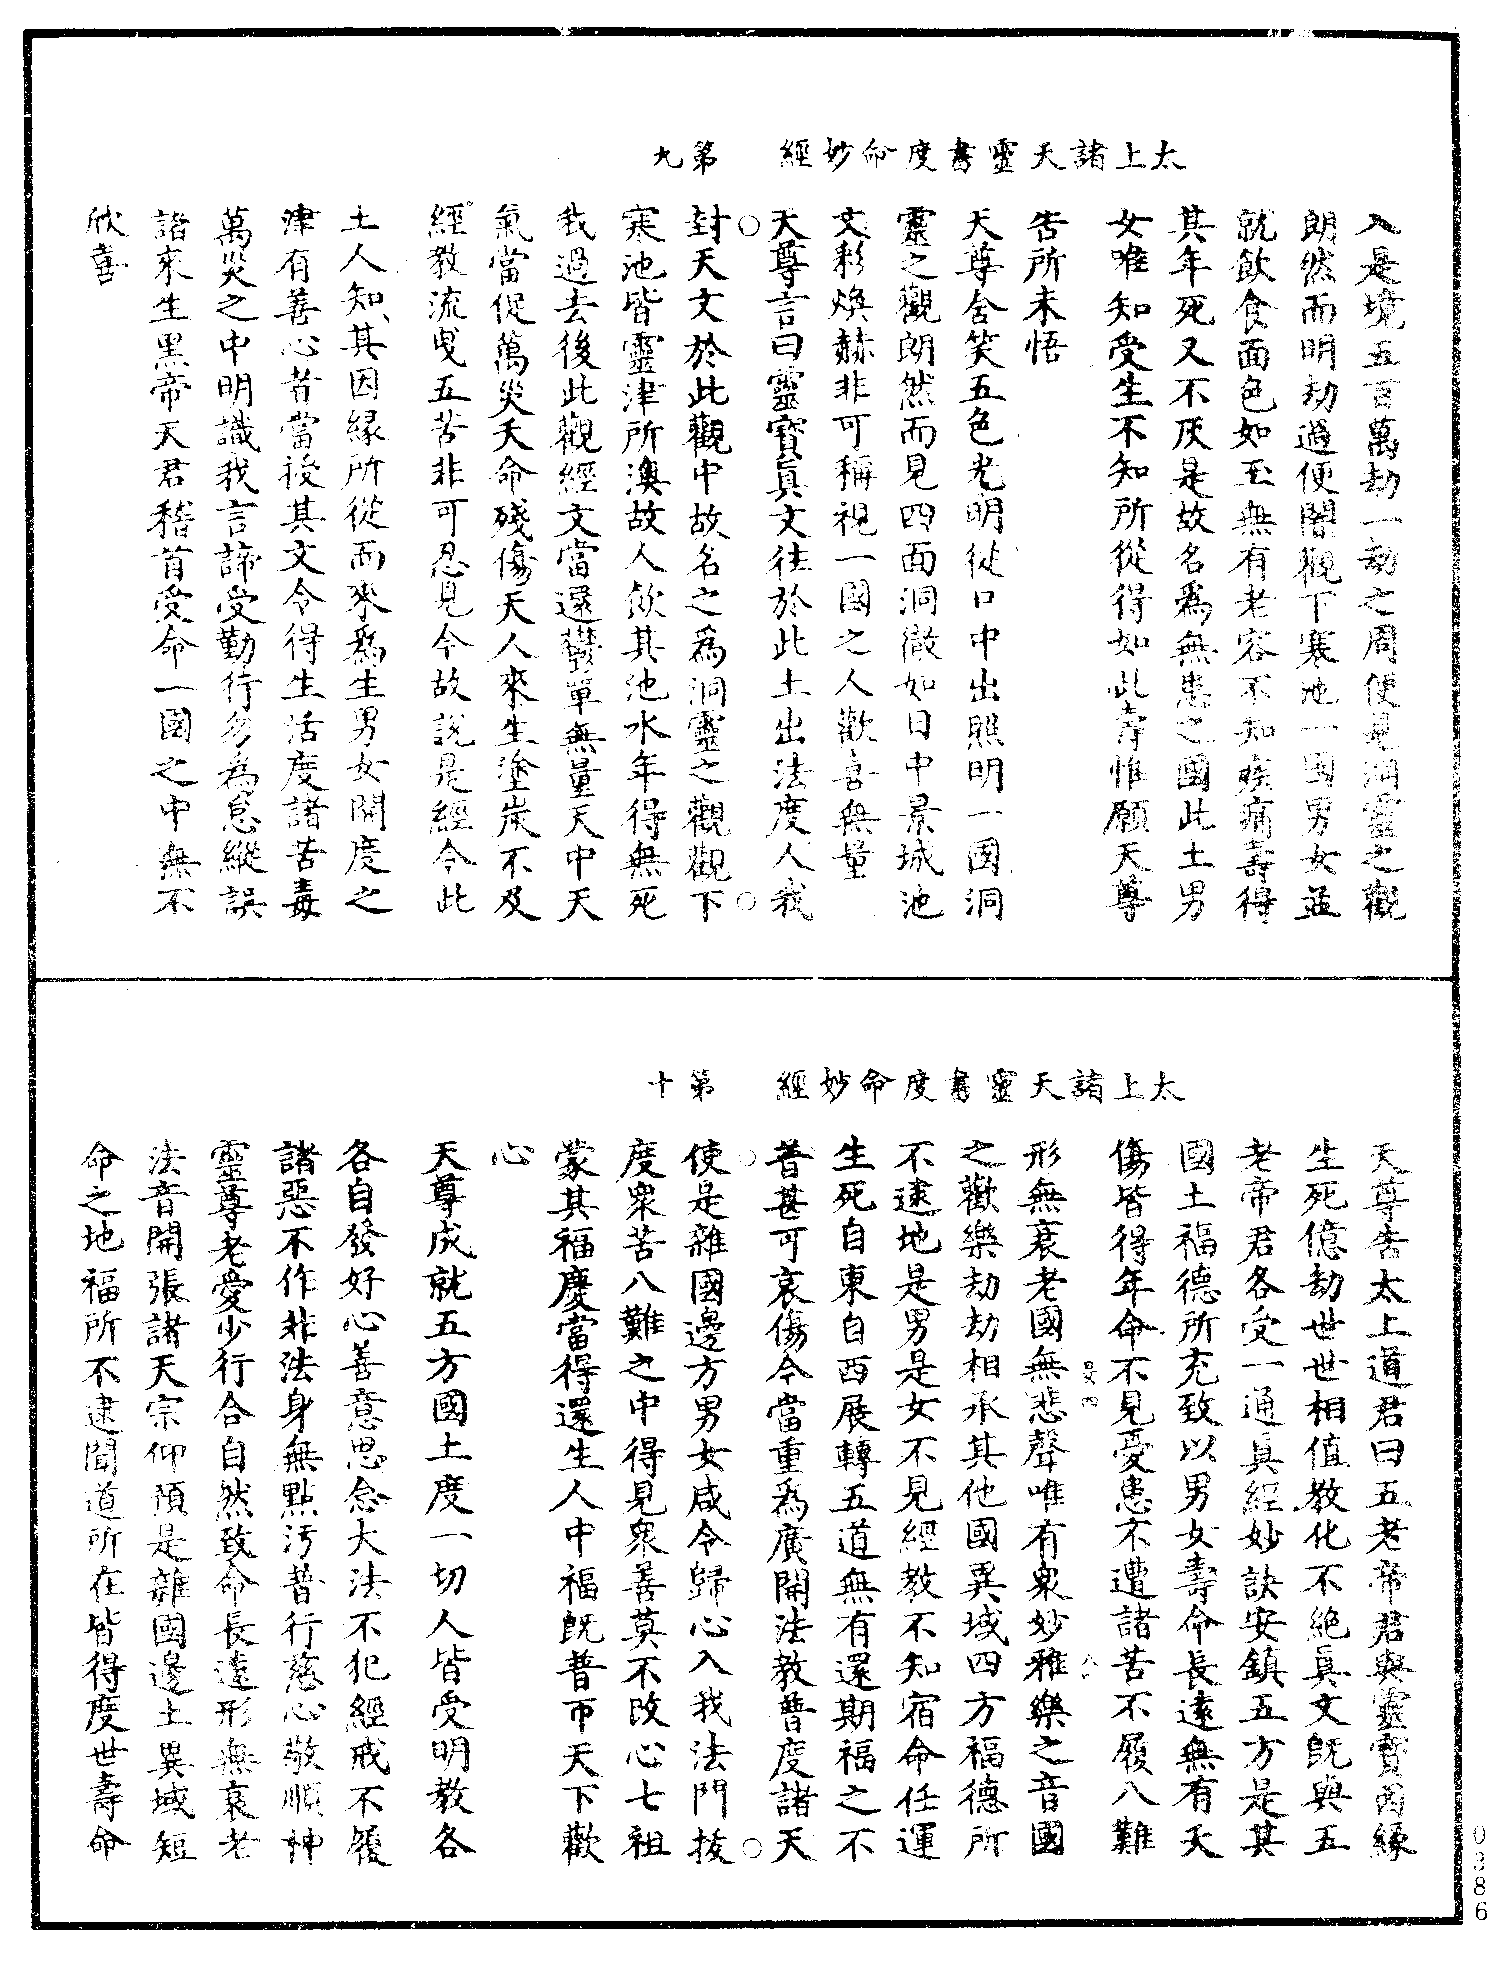 太上諸天靈書度命妙經　第九
入是境五百萬劫一劫之周便見洞靈之觀
朗然而明劫過便闇觀下寒池一國男女並
就飲食面色如玉無有老容不知疾痛壽得
其年死又不灰是故名爲無患之國此土男
女唯知受生不知所從得如此壽惟願天尊
告所未悟
天尊含笑五色光明從口中出照明一國洞
靈之觀朗然而見四面洞徹如日中景城池
文彩煥赫非可稱視一國之人歡喜無量
天尊言曰靈寳眞文往於此土出法度人我
封天文於此觀中故名之爲洞靈之觀觀下
寒池皆靈津所澳故人飲其池水年得無死
我過去後此觀經文當還鬱單無量天中天
氣當促萬災夭命殘傷天人來生塗炭不及
經教流曳五苦非可忍見今故說是經令此
土人知其因緣所從而來爲生男女開度之
津有善心者當授其文令得生活度諸苦毒
萬災之中明識我言諦受勤行勿為怠縱誤
諸來生黑帝天君稽首受命一國之中無不
欣喜
太上諸天靈書度命妙經　第十
天尊告太上道君曰五老帝君與靈寳因緣
生死億劫世世相值教化不絕眞文旣與五
老帝君各受一通眞經妙訣安鎮五方是其
國土福德所充致以男女壽命長遠無有夭
傷皆得年命不見憂患不遭諸苦不履八難
形無衰老國無悲聲唯有衆妙雅樂之音國
之歡樂劫劫相承其他國異域四方福德所
不逮地是男是女不見經教不知宿命任運
生死自東自西展轉五道無有還期福之不
普甚可哀傷今當重爲廣開法教普度諸天
使是雜國邊方男女咸令歸心入我法門拔
度衆苦八難之中得見衆善莫不改心七祖
蒙其福慶當得還生人中福旣普帀天下歡
心
天尊成就五方國土度一切人皆受明教各
各自發好心善意思念大法不犯經戒不履
諸惡不作非法身無點污普行慈心敬順神
靈尊老愛少行合自然致命長遠形無衰老
法音開張諸天宗仰預是雜國邊土異域短
命之地福所不逮聞道所在皆得度世壽命
0386